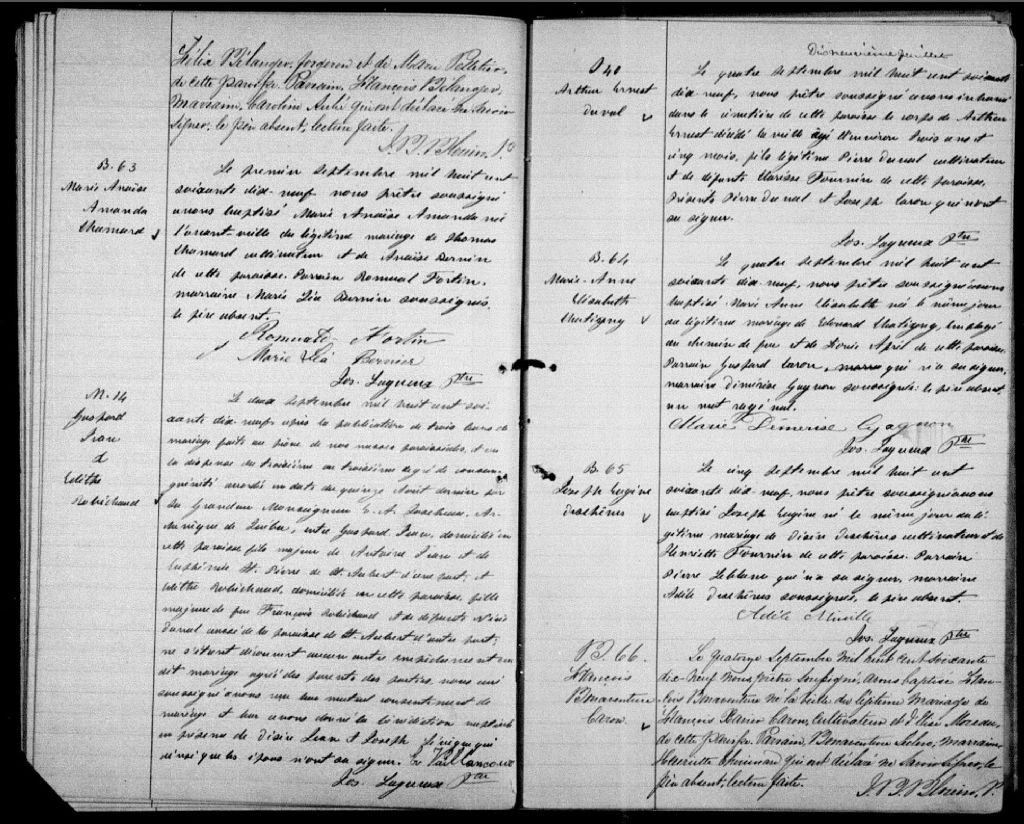 Bélanger, forgeron et de
de cette paroisse. Parrain, François Bélanger,
Marraine, Caroline Aubé qui ont déclaré ne savoir
signer, le père absent, lecture faite.
B. 63
Marie Anaise
Amanda
Chamard
Le premier septembre mil huit cent
soixante dix-neuf nous prêtre soussigné
avons baptisé Marie Anaise Amanda née
l'avant-veille du légitime mariage de Thomas
Chamard cultivateur et de Anaise Bernier
de cette paroisse. Parrain Romuald Fortin,
marraine Marie Léa Bernier soussignés,
le père absent.
Romuald Fortin
Marie Léa Bernier
Jos. Lagueux Ptre
M. 14
Gaspard
Jean
&
Edithe
Robichaud
Le deux septembre mil huit cent soi
xante dix-neuf après la publication de trois bans de
mariage faite au prône de nos messes paroissiales, et vu
la dispense du troisième au troisième degré de consan-
guinité accordée en date du quinze Août dernier par
Sa Grandeur Monseigneur E. A. Taschereau, Ar-
chevêque de Québec, entre Gaspard Jean, domicilié en
cette paroisse fils majeur de Antoine Jean et de
St. Pierre de St. Aubert d'une part; et
Edithe Robichaud, domiciliée en cette paroisse, fille
majeure de feu François Robichaud et de défunte
Duval aussi de la paroisse de St. Aubert d'autre part;
ne s'étant découvert aucun autre empêchement au
dit mariage agréé des parents des parties, nous curé
soussigné avons reçu leur mutuel consentement de
mariage et leur avons donné la bénédiction nuptiale
en présence de Désiré Jean et Joseph
ainsi que les époux n'ont su signer. Vaillancourt
Jos. Lagueux Ptre
Dix neuvième feuillet
S 40
Arthur Ernest
Duval
Le quatre septembre mil huit cent soixante
dix neuf, nous prêtre soussigné avons inhumé
dans le cimetière de cette paroisse le corps de Arthur
Ernest décédé la veille âgé d'environ trois ans et
cinq mois, fils légitime Pierre Duval cultivateur
et de défunte Clarisse Fournier de cette paroisse.
Présents Pierre Duval et Joseph Caron qui n'ont
su signer.
Jos. Lagueux Ptre
B. 64
Marie-Anne
Elisabeth
Chatigny
Le quatre septembre mil huit cent
soixante dix-neuf, nous prêtre soussigné avons
baptisé Marie Anne Elisabeth née le même jour
au légitime mariage de Edouard Chatigny, Employé
au chemin de fer et de de cette paroisse
Parrain Gaspard Caron, qui n'a su signer,
marraine Dimérise Gagnon soussignée; le père absent,
un mot rayé nul.
Marie Démerise Gagnon
Jos. Lagueux Ptre
B. 65
Joseph Eugène
Deschênes
Le cinq septembre mil huit cent
soixante dix-neuf, nous prêtre soussigné avons
baptisé Joseph Eugène né le même jour du lé-
gitime mariage de Désiré Deschênes cultivateur et de
Henriette Fournier de cette paroisse. Parrain
Pierre Leblanc qui n'a su signer, marraine
Adèle Deschênes soussignée, le père absent.
Adèle Miville
Jos. Lagueux Ptre
B. 66.
François
Bonaventure
Caron.
Le quatorze Septembre mil huit cent soixante
dix-neuf nous prêtre soussigné, avons baptisé Fran-
çois Bonaventure né la veille du légitime mariage de
François Caron, cultivateur et d' Moreau,
de cette paroisse. Parrain, Bonaventure, Marraine,
Henriette qui ont déclaré ne savoir signer, le
père absent, lecture faite.